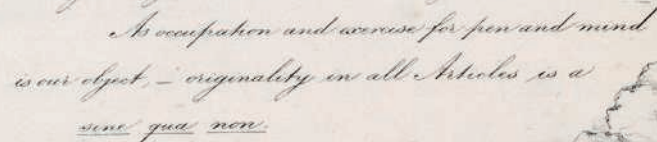 As occupation and exercise for pen and mind
is our object, – originality in all Articles is a
sine qua non.